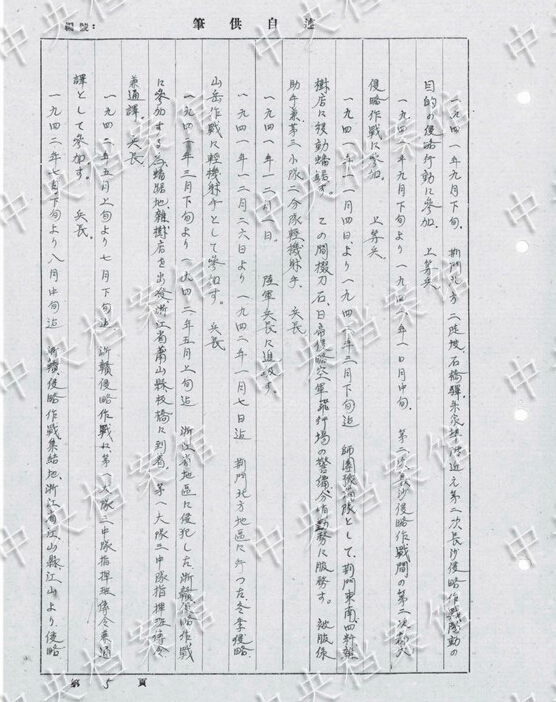 編號:
筆供白述
一九四一年九月下旬、荊門北方二陸坡、石橋驛、朱家埠附近元第二次長沙侵略作戰陽動の
目的の侵略行動に参加. 上等兵.
一九四一年九月下旬より一九四一年一〇月中旬. 第二次長沙侵略作戰間の第二次
侵略作戰に参加. 上等兵.
一九四一年一一月四日より一九四二年三月下旬迄 師團として、荊門東南四粁雜
樹店に移動蟠踞す. この間掇刀石、日高侵略空軍飛行場の警備分哨勤務に服務す.
助手兼第三小隊二分隊輕機射手. 兵長
一九四一年一二月一日. 陸軍兵長に進級す.
一九四一年一二月二六日より一九四二年一月七日迄 荊門北方地區に行つた冬季侵略
山岳作戰に輕機射手として参加す. 兵長
一九四二年三月下旬より一九四二年五月上旬迄 浙江省地區に侵犯した浙贛侵略作戰
に参加する為蟠踞地、雜樹店を出發、浙江省蕭山縣板橋に到着. 第一大隊三中隊指揮班傳令
兼通譯. 兵長.
一九四二年五月上旬より七月下旬迄 浙贛侵略作戰に第一大隊三中隊指揮班傳令兼通
譯として参加す. 兵長.
一九四二年七月下旬より八月中旬迄 浙贛侵略作戰集結地、浙江省江山縣江山より侵略
第 5 頁
中央档案馆